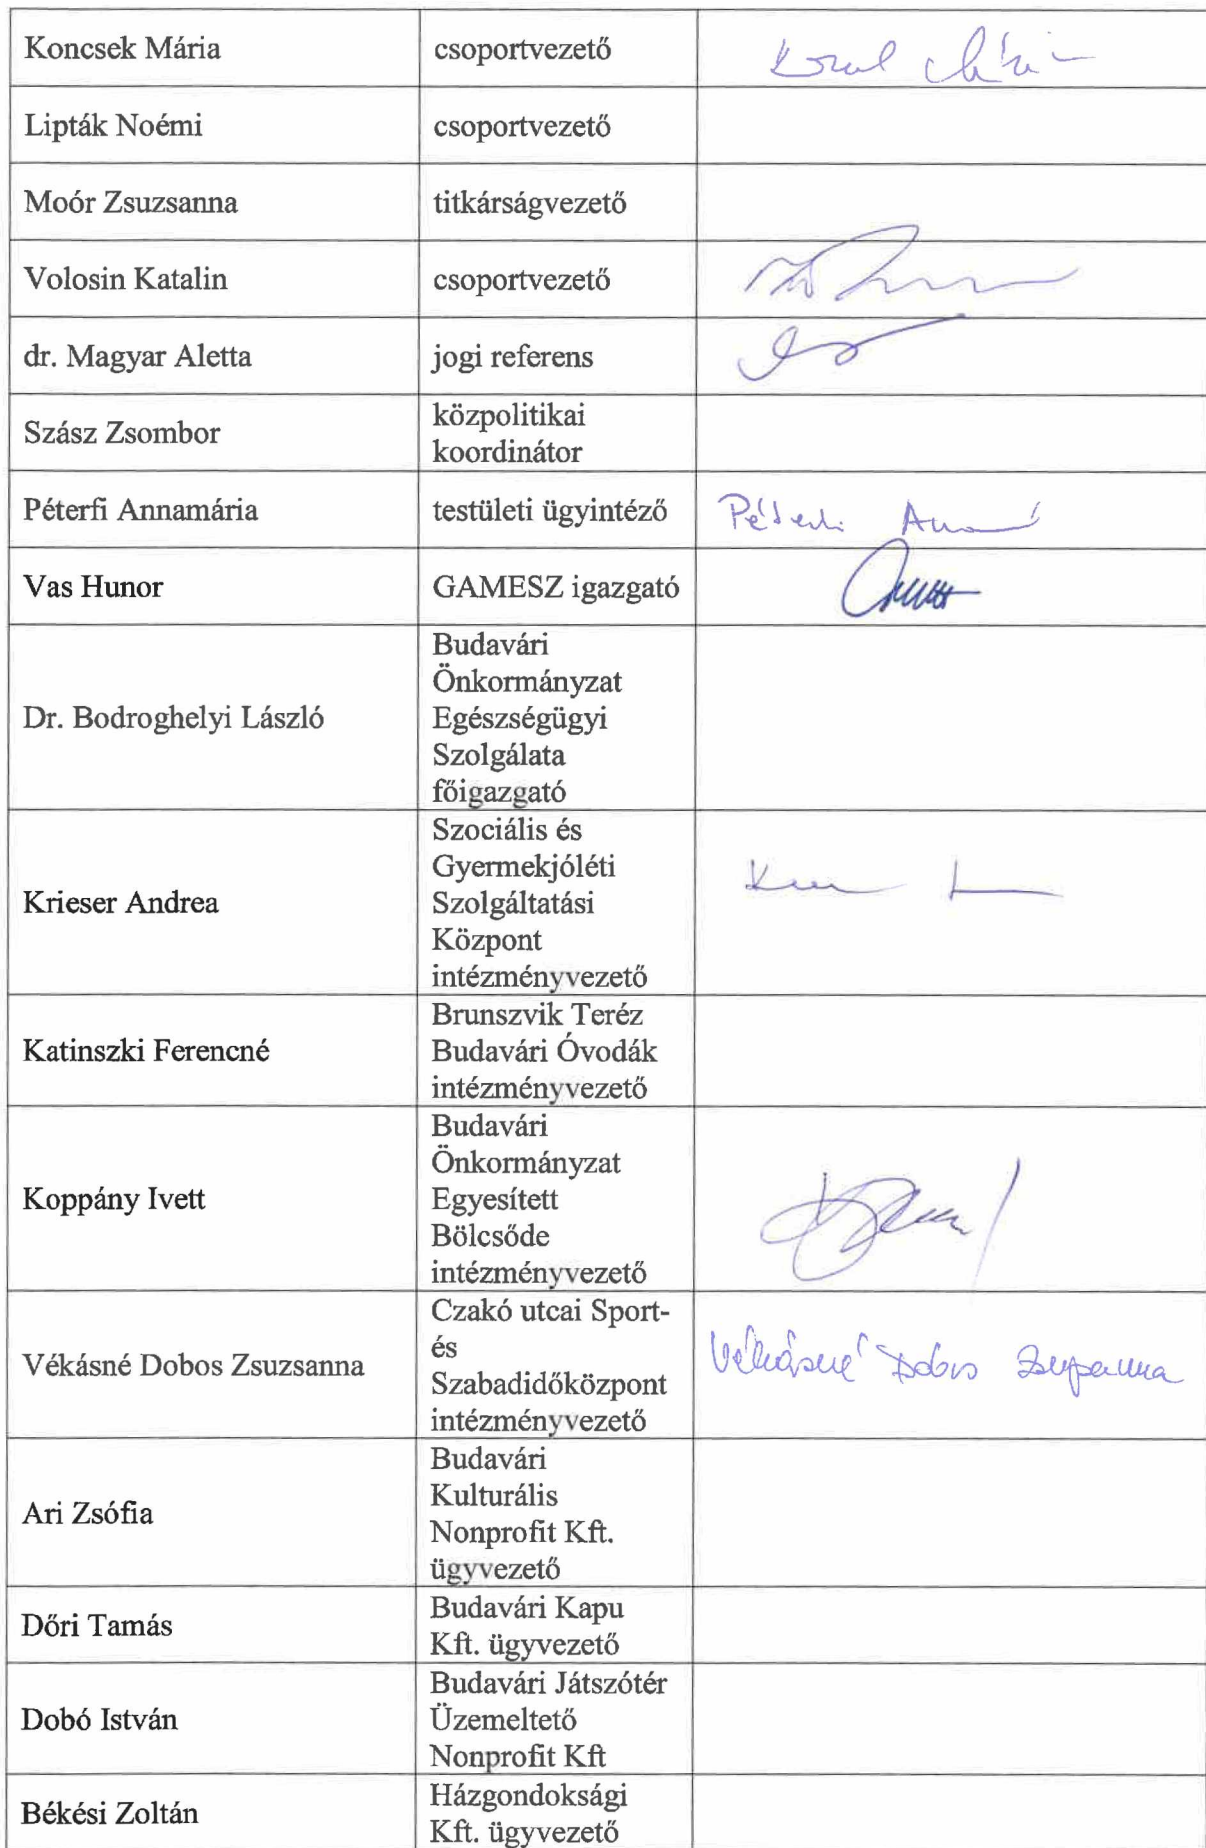 Koncsek Mária
csoportvezető
Lipták Noémi
csoportvezető
Moór Zsuzsanna
titkárságvezető
Volosin Katalin
csoportvezető
dr. Magyar Aletta
jogi referens
Szász Zsombor
közpolitikai
koordinátor
Péterfi Annamária
testületi ügyintéző
Vas Hunor
GAMESZ igazgató
Dr. Bodroghelyi László
Budavári
Önkormányzat
Egészségügyi
Szolgálata
főigazgató
Krieser Andrea
Szociális és
Gyermekjóléti
Szolgáltatási
Központ
intézményvezető
Katinszki Ferencné
Brunszvik Teréz
Budavári Óvodák
intézményvezető
Koppány Ivett
Budavári
Önkormányzat
Egyesített
Bölcsőde
intézményvezető
Végásné Dobos Zsuzsanna
Czakó utcai Sport-
és
Szabadidőközpont
intézményvezető
Vékásné Dobos Zsuzsanna
Ari Zsófia
Budavári
Kulturális
Nonprofit Kft.
ügyvezető
Dőri Tamás
Budavári Kapu
Kft. ügyvezető
Dobó István
Budavári Játszótér
Üzemeltető
Nonprofit Kft
Békési Zoltán
Házgondoksági
Kft. ügyvezető